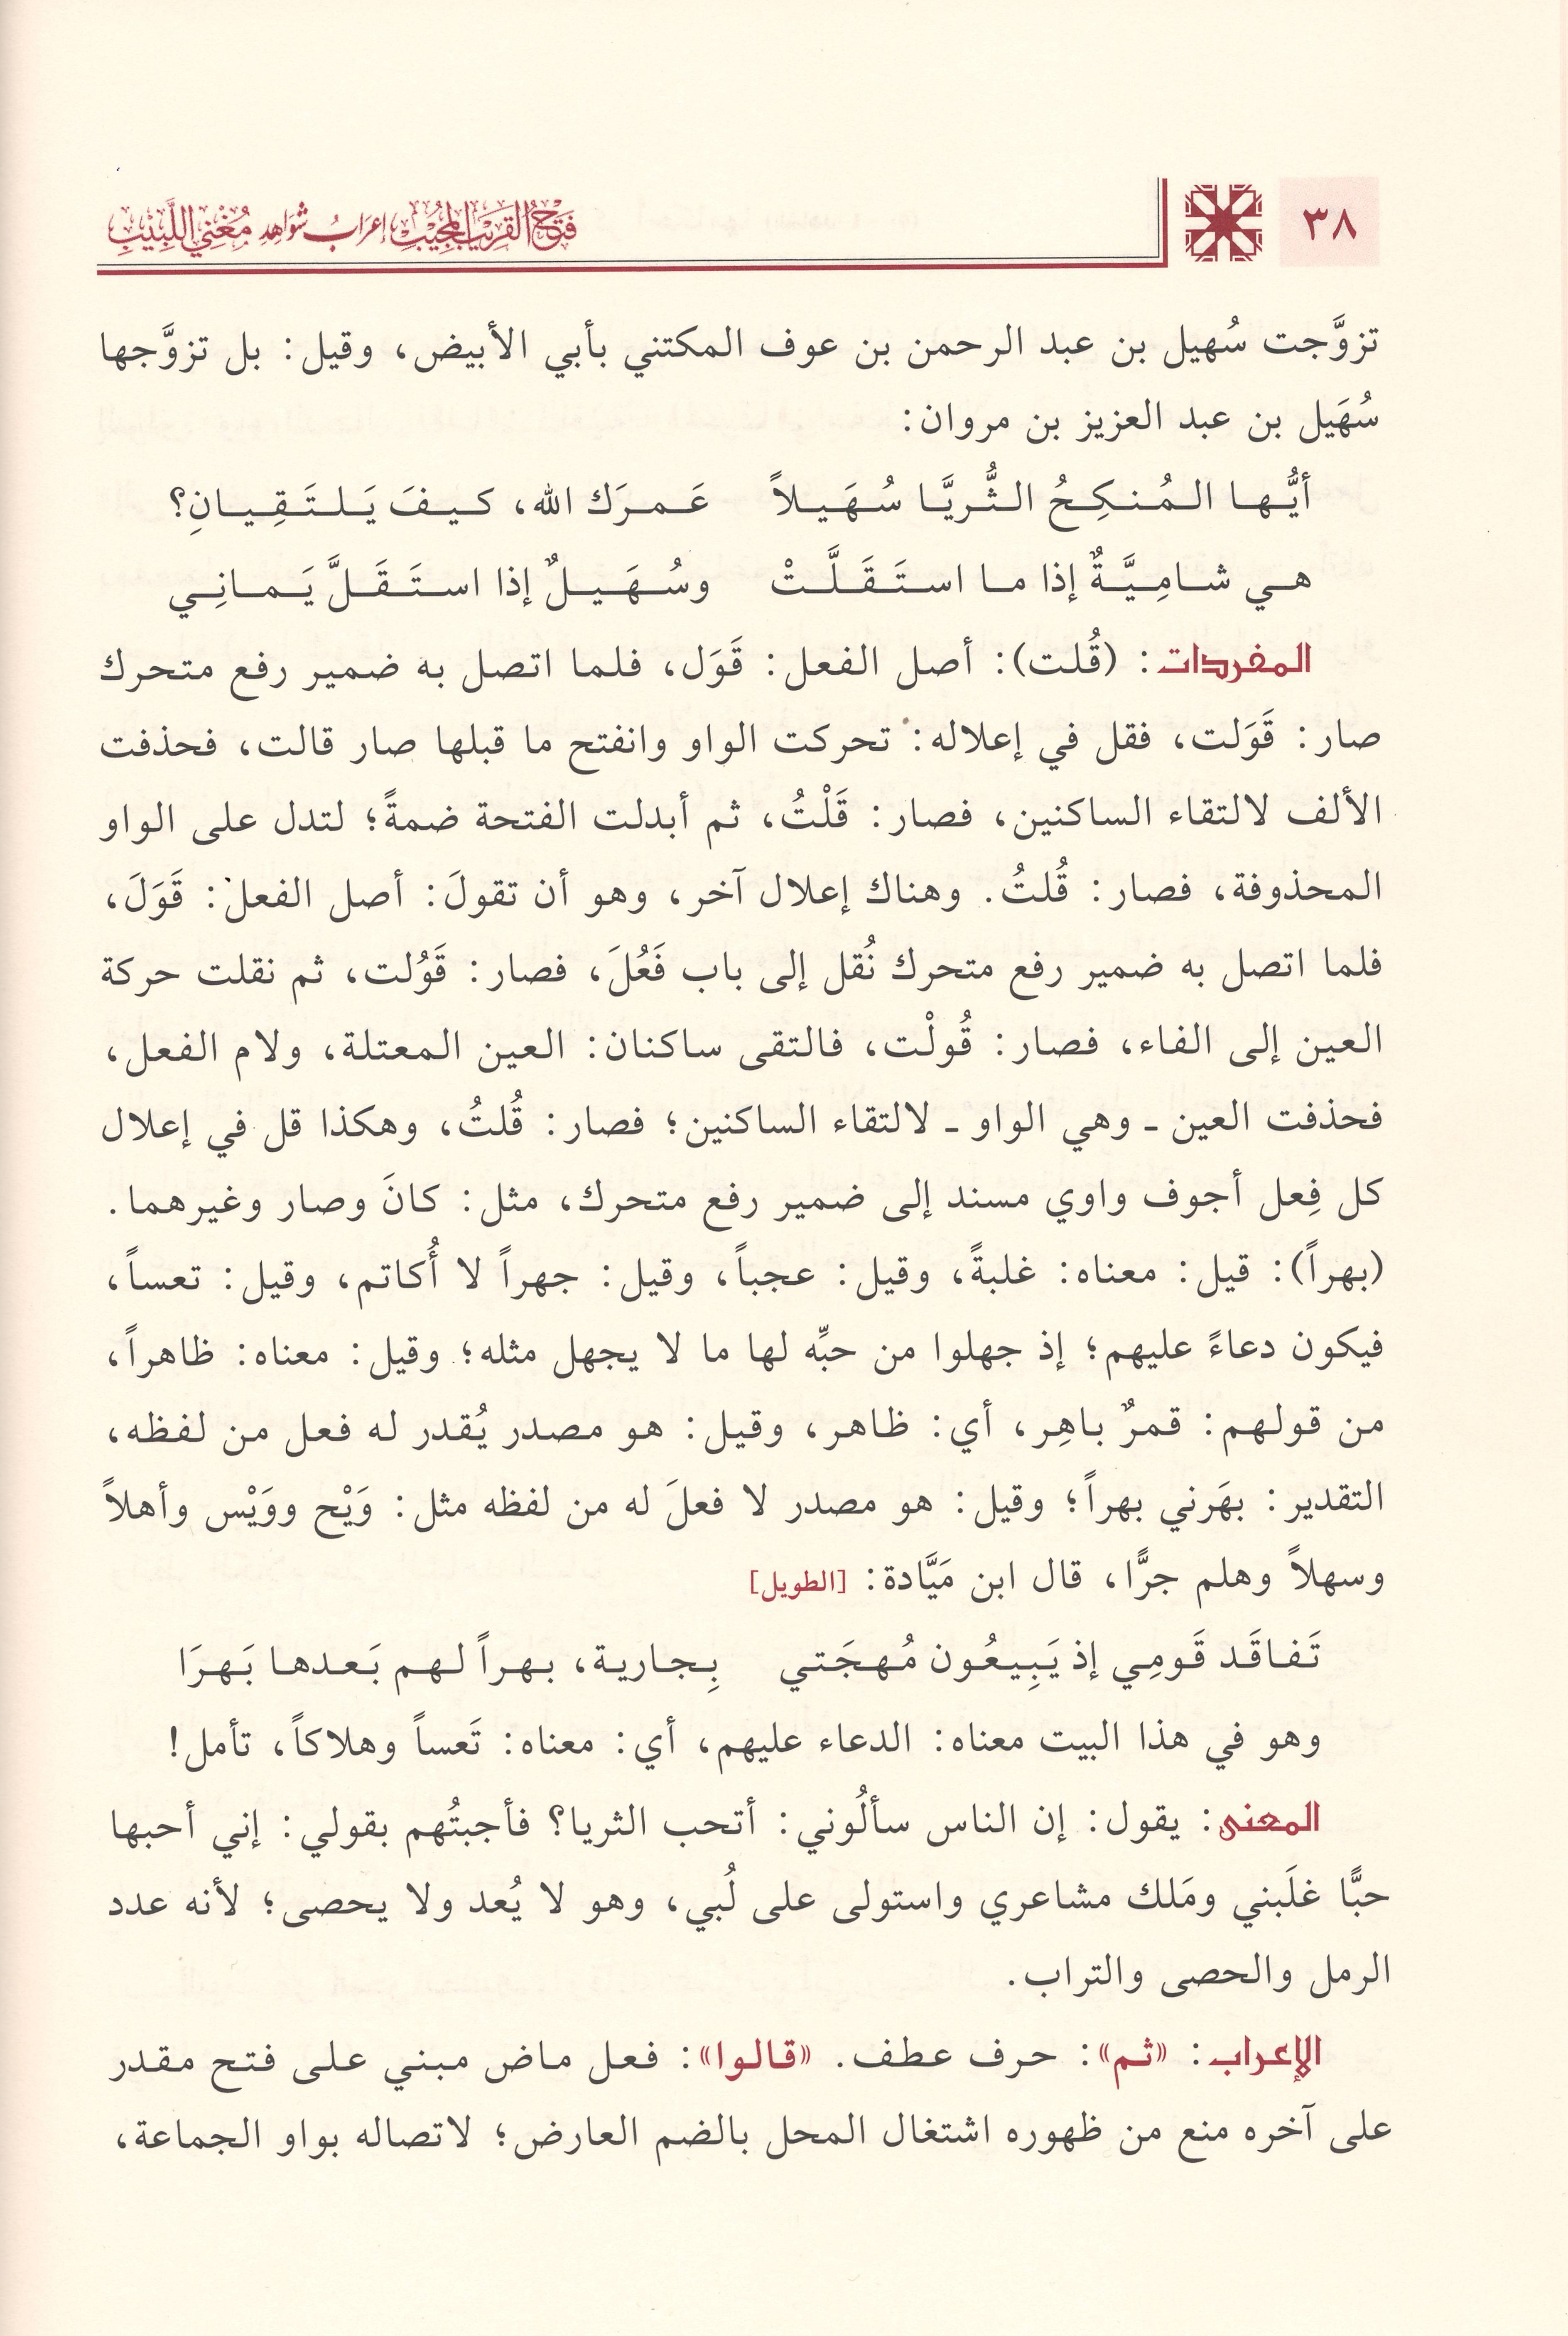 ٣٨
فتح القريب المجيب إعراب شواهد مغني اللبيب
تزوَّجت سُهيل بن عبد الرحمن بن عوف المكتني بأبي الأبيض، وقيل: بل تزوَّجها
سُهَيل بن عبد العزيز بن مروان:
أيُّها المُنكِحُ الثُّريَّا سُهَيلاً عَمرَك الله، كيفَ يَلتَقِيانِ؟
هي شامِيَّةٌ إذا ما استَقَلَّتْ وسُهَيلٌ إذا استَقَلَّ يَمانِي
المفردات: (قُلت): أصل الفعل: قَوَل، فلما اتصل به ضمير رفع متحرك
صار: قَوَلت، فقل في إعلاله: تحركت الواو وانفتح ما قبلها صار قالت، فحذفت
الألف لالتقاء الساكنين، فصار: قَلْتُ، ثم أبدلت الفتحة ضمةً؛ لتدل على الواو
المحذوفة، فصار: قُلتُ. وهناك إعلال آخر، وهو أن تقولَ: أصل الفعل: قَوَلَ،
فلما اتصل به ضمير رفع متحرك نُقل إلى باب فَعُلَ، فصار: قَوُلت، ثم نقلت حركة
العين إلى الفاء، فصار: قُولْت، فالتقى ساكنان: العين المعتلة، ولام الفعل،
فحذفت العين ـ وهي الواو ـ لالتقاء الساكنين؛ فصار: قُلتُ، وهكذا قل في إعلال
كل فِعل أجوف واوي مسند إلى ضمير رفع متحرك، مثل: كانَ وصار وغيرهما.
(بهراً): قيل: معناه: غلبةً، وقيل: عجباً، وقيل: جهراً لا أُكاتم، وقيل: تعساً،
فيكون دعاءً عليهم؛ إذ جهلوا من حبِّه لها ما لا يجهل مثله؛ وقيل: معناه: ظاهراً،
من قولهم: قمرٌ باهِر، أي: ظاهر، وقيل: هو مصدر يُقدر له فعل من لفظه،
التقدير: بهَرني بهراً؛ وقيل: هو مصدر لا فعلَ له من لفظه مثل: وَيْح ووَيْس وأهلاً
وسهلاً وهلم جرًّا، قال ابن مَيَّادة: [الطويل]
تَفاقَد قَومِي إذ يَبِيعُون مُهجَتي بِجارية، بهراً لهم بَعدها بَهرَا
وهو في هذا البيت معناه: الدعاء عليهم، أي: معناه: تَعساً وهلاكاً، تأمل!
المعنى: يقول: إن الناس سألُوني: أتحب الثريا؟ فأجبتُهم بقولي: إني أحبها
حبًّا غلَبني ومَلك مشاعري واستولى على لُبي، وهو لا يُعد ولا يحصى؛ لأنه عدد
الرمل والحصى والتراب.
الإعراب: «ثم»: حرف عطف. «قالوا»: فعل ماض مبني على فتح مقدر
على آخره منع من ظهوره اشتغال المحل بالضم العارض؛ لاتصاله بواو الجماعة،